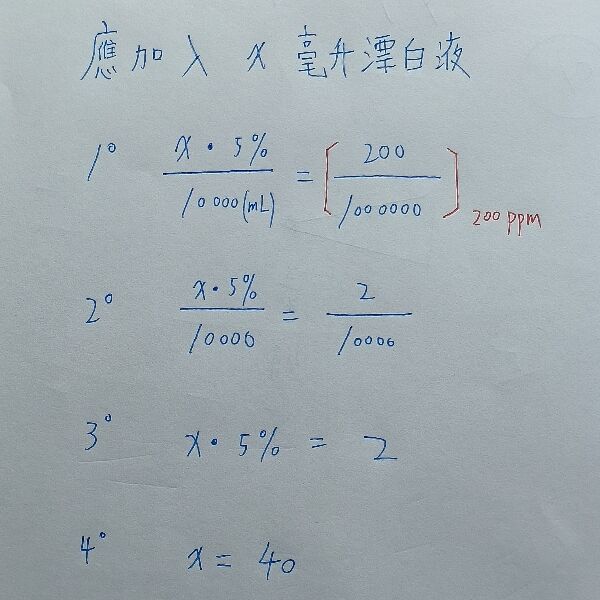 應加入 x 毫升漂白液
1° x · 5% / 10000(mL) = [ 200 / 1000000 ] 200 ppm
2° x · 5% / 10000 = 2 / 10000
3° x · 5% = 2
4° x = 40